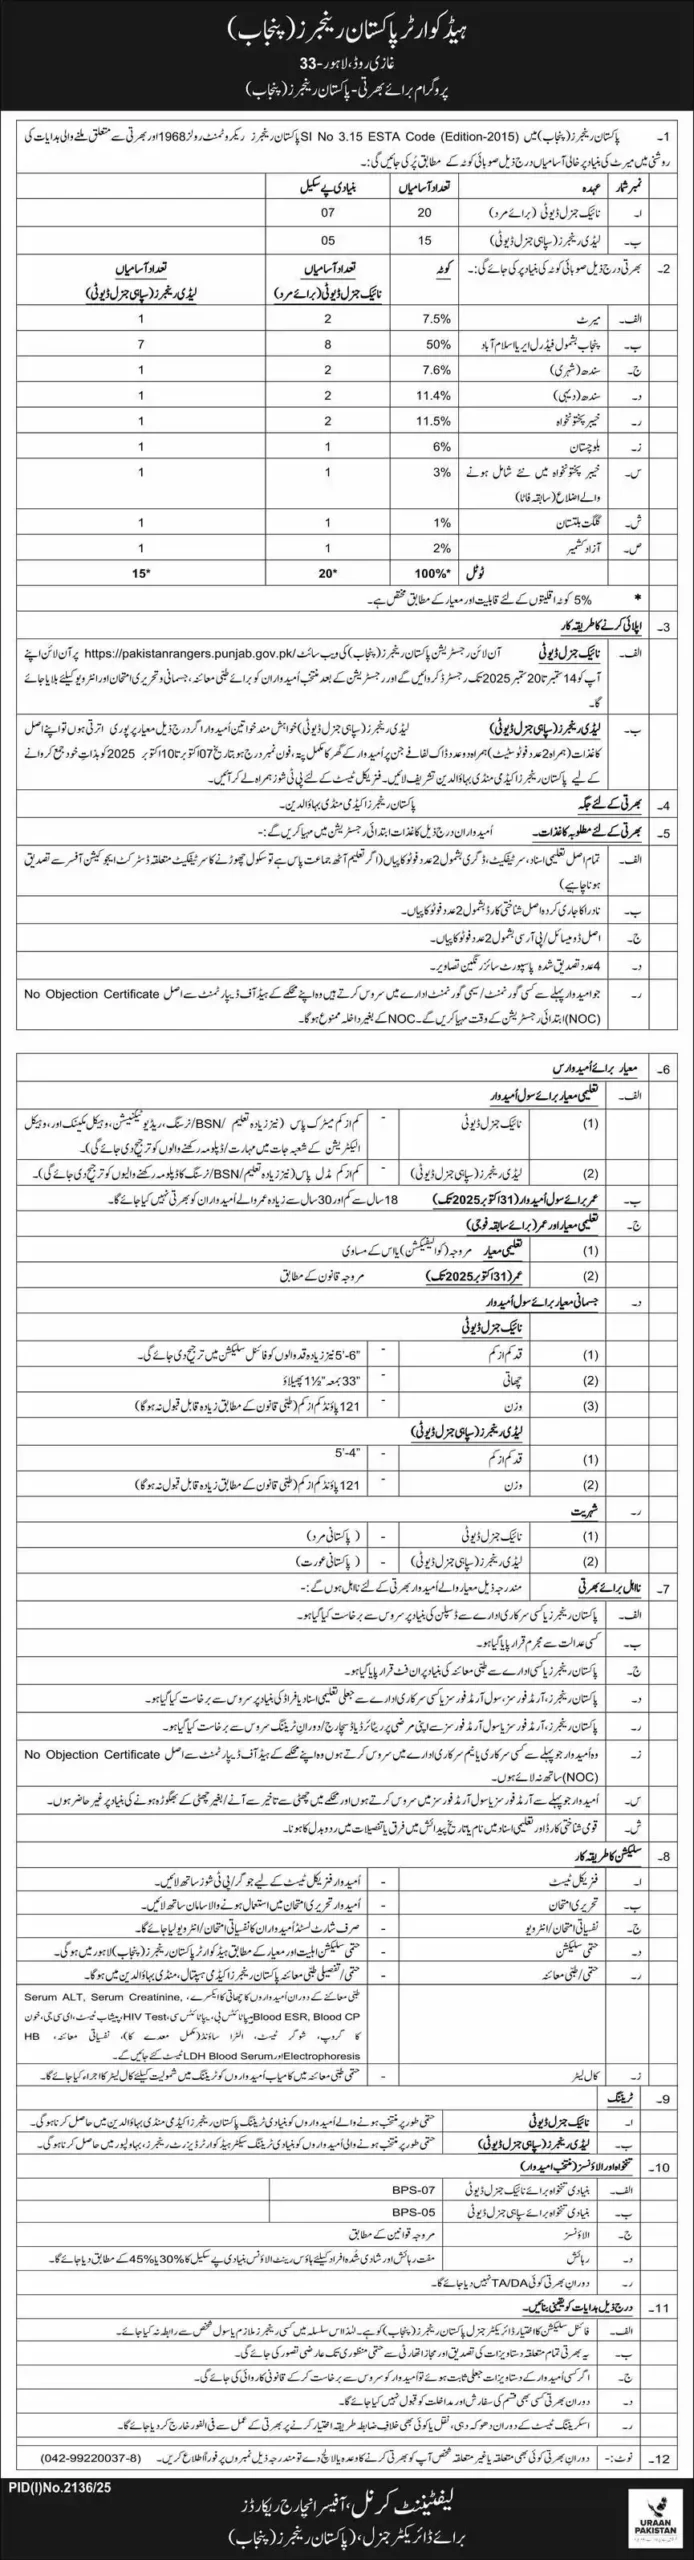 ہیڈ کوارٹر پاکستان رینجرز (پنجاب)
غازی روڈ، لاہور-33
پروگرام برائے بھرتی - پاکستان رینجرز (پنجاب)
1۔ پاکستان رینجرز (پنجاب) میں SI No 3.15 ESTA Code (Edition-2015) پاکستان رینجرز ریکروٹمنٹ رولز 1968 اور بھرتی سے متعلق ملنے والی ہدایات کی
روشنی میں میرٹ کی بنیاد پر خالی آسامیاں درج ذیل صوبائی کوٹہ کے مطابق پُر کی جائیں گی:۔
نمبر شمار عہدہ تعداد آسامیاں بنیادی پے سکیل
ا۔ نائیک جنرل ڈیوٹی (برائے مرد) 20 07
ب۔ لیڈی رینجرز (سپاہی جنرل ڈیوٹی) 15 05
2۔ بھرتی درج ذیل صوبائی کوٹہ کی بنیاد پر کی جائے گی:۔ کوٹہ تعداد آسامیاں تعداد آسامیاں
نائیک جنرل ڈیوٹی (برائے مرد) لیڈی رینجرز (سپاہی جنرل ڈیوٹی)
الف۔ میرٹ 7.5% 2 1
ب۔ پنجاب بشمول فیڈرل ایریا اسلام آباد 50% 8 7
ج۔ سندھ (شہری) 7.6% 2 1
د۔ سندھ (دیہی) 11.4% 2 1
ر۔ خیبر پختونخواہ 11.5% 2 1
ز۔ بلوچستان 6% 1 1
س۔ خیبر پختونخواہ میں نئے شامل ہونے 3% 1 1
والے اضلاع (سابقہ فاٹا)
ش۔ گلگت بلتستان 1% 1 1
ص۔ آزاد کشمیر 2% 1 1
ٹوٹل 100%* 20* 15*
* 5% کوٹہ اقلیتوں کے لئے قابلیت اور معیار کے مطابق مختص ہے۔
3۔ اپلائی کرنے کا طریقہ کار
الف۔ نائیک جنرل ڈیوٹی آن لائن رجسٹریشن پاکستان رینجرز (پنجاب) کی ویب سائٹ https://pakistanrangers.punjab.gov.pk/ پر آن لائن اپنے
آپ کو 14 ستمبر تا 20 ستمبر 2025 تک رجسٹرڈ کروائیں گے اور رجسٹریشن کے بعد منتخب اُمیدواران کو برائے طبی معائنہ، جسمانی و تحریری امتحان اور انٹرویو کیلئے بلایا جائے
گا۔
ب۔ لیڈی رینجرز (سپاہی جنرل ڈیوٹی) لیڈی رینجرز (سپاہی جنرل ڈیوٹی) خواہش مند خواتین اُمیدوار اگر درج ذیل معیار پر پوری اترتی ہوں تو اپنے اصل
کاغذات (ہمراہ 2 عدد فوٹو سٹیٹ) ہمراہ دو عدد ڈاک لفافے جن پر اُمیدوار کے گھر کا مکمل پتہ، فون نمبر درج ہو بتاریخ 07 اکتوبر تا 10 اکتوبر 2025 کو بذاتِ خود جمع کروانے
کے لیے پاکستان رینجرز اکیڈمی منڈی بہاؤالدین تشریف لائیں۔ فزیکل ٹیسٹ کے لئے پی ٹی شوز ہمراہ لے کر آئیں۔
4۔ بھرتی کے لئے جگہ پاکستان رینجرز اکیڈمی منڈی بہاؤالدین۔
5۔ بھرتی کے لئے مطلوبہ کاغذات۔ اُمیدواران درج ذیل کاغذات ابتدائی رجسٹریشن میں مہیا کریں گے:۔
الف۔ تمام اصل تعلیمی اسناد، سرٹیفکیٹ، ڈگری بشمول 2 عدد فوٹو کاپیاں (اگر تعلیم آٹھ جماعت پاس ہے تو سکول چھوڑنے کا سرٹیفکیٹ متعلقہ ڈسٹرکٹ ایجوکیشن آفسر سے تصدیق
ہونا چاہیے)
ب۔ نادرا کا جاری کردہ اصل شناختی کارڈ بشمول 2 عدد فوٹو کاپیاں۔
ج۔ اصل ڈومیسائل / پی آر سی بشمول 2 عدد فوٹو کاپیاں۔
د۔ 4 عدد تصدیق شدہ پاسپورٹ سائز رنگین تصاویر۔
ر۔ جو امیدوار پہلے سے کسی گورنمنٹ / سیمی گورنمنٹ ادارے میں سروس کرتے ہیں وہ اپنے محکمے کے ہیڈ آف ڈیپارٹمنٹ سے اصل No Objection Certificate
(NOC) ابتدائی رجسٹریشن کے وقت مہیا کریں گے۔ NOC کے بغیر داخلہ ممنوع ہوگا۔
6۔ معیار برائے اُمیدوارس
الف۔ تعلیمی معیار برائے سول اُمیدوار
(1) نائیک جنرل ڈیوٹی - کم از کم میٹرک پاس (نیز زیادہ تعلیم /BSN/ نرسنگ، ریڈیو ٹیکنیشن، وہیکل مکینک اور، وہیکل
الیکٹریشن کے شعبہ جات میں مہارت / ڈپلومہ رکھنے والوں کو ترجیح دی جائے گی)۔
(2) لیڈی رینجرز (سپاہی جنرل ڈیوٹی) - کم از کم مڈل پاس (نیز زیادہ تعلیم /BSN/ نرسنگ کا ڈپلومہ رکھنے والیوں کو ترجیح دی جائے گی)۔
ب۔ عمر برائے سول اُمیدوار (31 اکتوبر 2025 تک) 18 سال سے کم اور 30 سال سے زیادہ عمر والے اُمیدواران کو بھرتی نہیں کیا جائے گا۔
ج۔ تعلیمی معیار اور عمر (برائے سابقہ فوجی)
(1) تعلیمی معیار مروجہ (کوالیفکیشن) یا اس کے مساوی
(2) عمر (31 اکتوبر 2025 تک) مروجہ قانون کے مطابق
د۔ جسمانی معیار برائے سول اُمیدوار
نائیک جنرل ڈیوٹی
(1) قد کم از کم - 5'-6" نیز زیادہ قد والوں کو فائنل سلیکشن میں ترجیح دی جائے گی۔
(2) چھاتی - 33" بمعہ 1½" پھیلاؤ
(3) وزن - 121 پاؤنڈ کم از کم (طبی قانون کے مطابق زیادہ قابل قبول نہ ہوگا)
لیڈی رینجرز (سپاہی جنرل ڈیوٹی)
(1) قد کم از کم - 5'-4"
(2) وزن - 121 پاؤنڈ کم از کم (طبی قانون کے مطابق زیادہ قابل قبول نہ ہوگا)
ر۔ شہریت
(1) نائیک جنرل ڈیوٹی - (پاکستانی مرد)
(2) لیڈی رینجرز (سپاہی جنرل ڈیوٹی) - (پاکستانی عورت)
7۔ نااہل برائے بھرتی مندرجہ ذیل معیار والے اُمیدوار بھرتی کے لئے نااہل ہوں گے:۔
الف۔ پاکستان رینجرز یا کسی سرکاری ادارے سے ڈسپلن کی بنیاد پر سروس سے برخاست کیا گیا ہو۔
ب۔ کسی عدالت سے مجرم قرار پایا گیا ہو۔
ج۔ پاکستان رینجرز یا کسی ادارے سے طبی معائنہ کی بنیاد پر ان فٹ قرار پایا گیا ہو۔
د۔ پاکستان رینجرز، آرمڈ فورسز، سول آرمڈ فورسز یا کسی سرکاری ادارے سے جعلی تعلیمی اسناد یا فراڈ کی بنیاد پر سروس سے برخاست کیا گیا ہو۔
ر۔ پاکستان رینجرز، آرمڈ فورسز یا سول آرمڈ فورسز سے اپنی مرضی پر ریٹائرڈ یا ڈسچارج / دورانِ ٹریننگ سروس سے برخاست کیا گیا ہو۔
ز۔ وہ اُمیدوار جو پہلے سے کسی سرکاری یا نیم سرکاری ادارے میں سروس کرتے ہوں وہ اپنے محکمے کے ہیڈ آف ڈیپارٹمنٹ سے اصل No Objection Certificate
(NOC) ساتھ نہ لائے ہوں۔
س۔ اُمیدوار جو پہلے سے آرمڈ فورسز یا سول آرمڈ فورسز میں سروس کرتے ہوں اور محکمے میں چھٹی سے تاخیر سے آنے / بغیر چھٹی کے بھگوڑہ ہونے کی بنیاد پر غیر حاضر ہوں۔
ش۔ قومی شناختی کارڈ اور تعلیمی اسناد میں نام یا تاریخ پیدائش میں فرق یا تفصیلات میں ردو بدل کا ہونا۔
8۔ سلیکشن کا طریقہ کار
ا۔ فزیکل ٹیسٹ - اُمیدوار فزیکل ٹیسٹ کے لیے جوگر / پی ٹی شوز ساتھ لائیں۔
ب۔ تحریری امتحان - اُمیدوار تحریری امتحان میں استعمال ہونے والا سامان ساتھ لائیں۔
ج۔ نفسیاتی امتحان / انٹرویو - صرف شارٹ لسٹڈ اُمیدواران کا نفسیاتی امتحان / انٹرویو لیا جائے گا۔
د۔ حتمی سلیکشن - حتمی سلیکشن اہلیت اور معیار کے مطابق ہیڈ کوارٹر پاکستان رینجرز (پنجاب) لاہور میں ہوگی۔
ر۔ حتمی / طبی معائنہ - حتمی / تفصیلی طبی معائنہ پاکستان رینجرز اکیڈمی ہسپتال، منڈی بہاؤالدین میں ہوگا۔
طبی معائنے کے دوران اُمیدواروں کا چھاتی کا ایکسرے، Serum ALT, Serum Creatinine,
Blood ESR, Blood CP ہیپاٹائٹس بی، ہیپاٹائٹس سی، HIV Test، پیشاب ٹیسٹ، ای سی جی، خون
کا گروپ، شوگر ٹیسٹ، الٹرا ساؤنڈ (مکمل معدے کا)، نفسیاتی معائنہ، HB
Electrophoresis اور LDH Blood Serum ٹیسٹ کئے جائیں گے۔
ز۔ کال لیٹر - حتمی طبی معائنہ میں کامیاب اُمیدواروں کو ٹریننگ میں شمولیت کیلئے کال لیٹر کا اجراء کیا جائے گا۔
9۔ ٹریننگ
ا۔ نائیک جنرل ڈیوٹی حتمی طور پر منتخب ہونے والے اُمیدواروں کو بنیادی ٹریننگ پاکستان رینجرز اکیڈمی منڈی بہاؤالدین میں حاصل کرنا ہوگی۔
ب۔ لیڈی رینجرز (سپاہی جنرل ڈیوٹی) حتمی طور پر منتخب ہونے والی اُمیدواروں کو بنیادی ٹریننگ سیکٹر ہیڈ کوارٹر ڈیزرٹ رینجرز، بہاولپور میں حاصل کرنا ہوگی۔
10۔ تنخواہ اور الاؤنسز (منتخب اُمیدوار)
الف۔ بنیادی تنخواہ برائے نائیک جنرل ڈیوٹی BPS-07
ب۔ بنیادی تنخواہ برائے سپاہی جنرل ڈیوٹی BPS-05
ج۔ الاؤنسز مروجہ قوانین کے مطابق
د۔ رہائش مفت رہائش اور شادی شُدہ افراد کیلئے ہاؤس رینٹ الاؤنس بنیادی پے سکیل کا 30% یا 45% کے مطابق دیا جائے گا۔
ر۔ دوران بھرتی کوئی TA/DA نہیں دیا جائے گا۔
11۔ درج ذیل ہدایات کو یقینی بنائیں۔
الف۔ فائنل سلیکشن کا اختیار ڈائریکٹر جنرل پاکستان رینجرز (پنجاب) کو ہے۔ لہٰذا اس سلسلہ میں کسی رینجرز ملازم یا سول شخص سے رابطہ نہ کیا جائے۔
ب۔ یہ بھرتی تمام متعلقہ دستاویزات کی تصدیق اور مجاز اتھارٹی سے حتمی منظوری تک عارضی تصور کی جائے گی۔
ج۔ اگر کسی اُمیدوار کے دستاویزات جعلی ثابت ہوئے تو اُمیدوار کو سروس سے برخاست کر کے قانونی کاروائی کی جائے گی۔
د۔ دوران بھرتی کسی بھی قسم کی سفارش اور مداخلت کو قبول نہیں کیا جائے گا۔
ر۔ اسکریننگ ٹیسٹ کے دوران دھوکہ دہی، نقل یا کوئی بھی خلافِ ضابطہ طریقہ اختیار کرنے پر بھرتی کے عمل سے فی الفور خارج کر دیا جائے گا۔
12۔ نوٹ:- دوران بھرتی کوئی بھی متعلقہ یا غیر متعلقہ شخص آپ کو بھرتی کرنے کا وعدہ یا لالچ دے تو مندرجہ ذیل نمبروں پر فوراً اطلاع کریں۔ (042-99220037-8)
PID(I)No.2136/25
لیفٹیننٹ کرنل، آفیسر انچارج ریکارڈز
برائے ڈائریکٹر جنرل، (پاکستان رینجرز (پنجاب)
URAAN
PAKISTAN